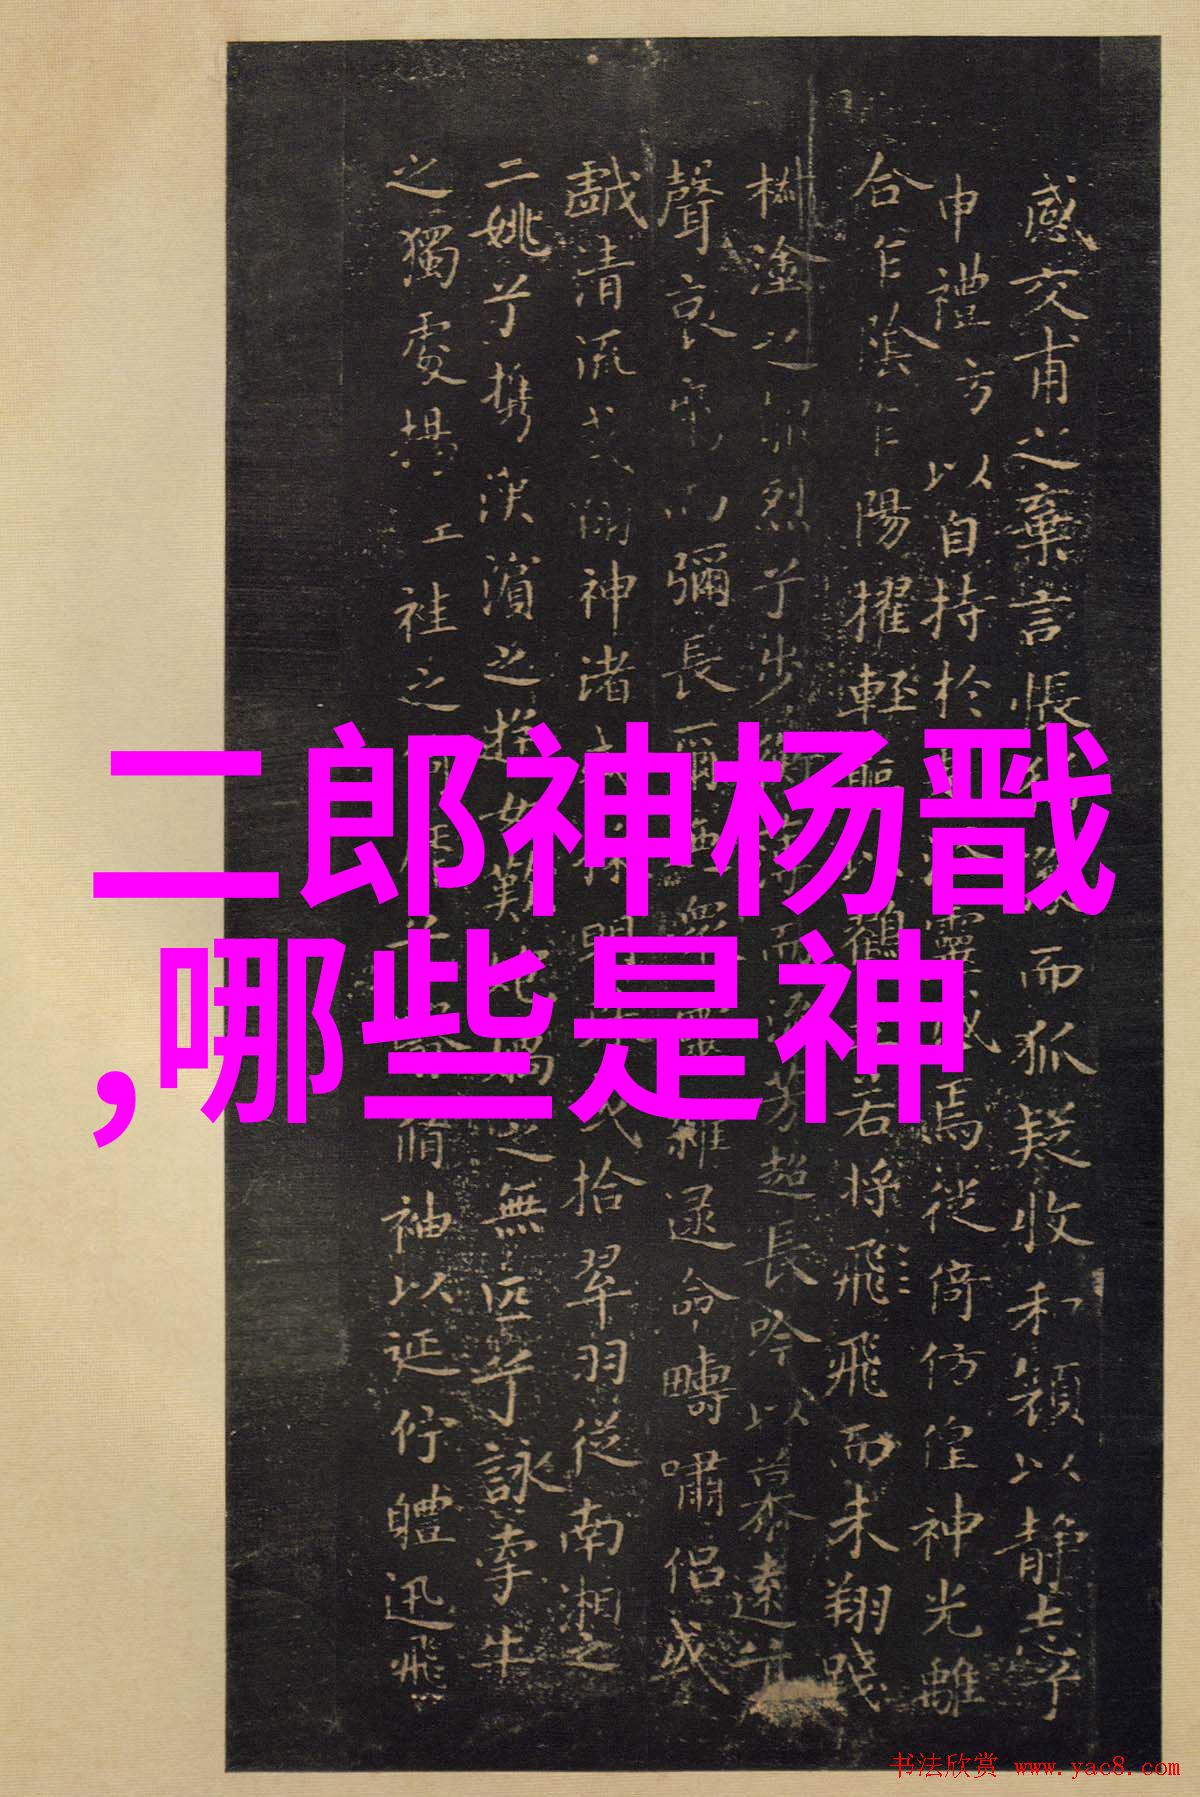 二郎神杨戬
,哪些是神
感交甫之棄言悵而狐疑收和顏以静志兮
申禮方以自持於靈感焉徙倚仿偟神光離
合乍陰乍陽擢輕軀鶴若將飛飛而未翔踐
椒塗之郁烈兮步而流芳超長吟以慕遠兮
聲哀厲而彌長爾衆靈雜遝命疇嘯侣或
戲清流或翔神渚或明或拾翠羽從南湘之
二姚兮攜漢濱之游女歎媧之無匹兮詠牽牛
之獨處揚袿之脩袖以延佇體迅飛
书法欣赏 www.yac8.com